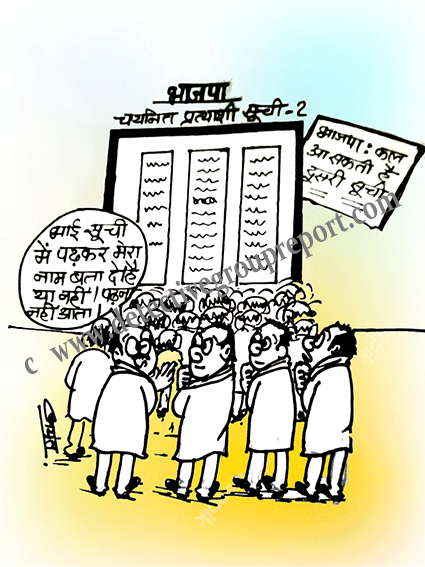 भाजपा
चयनित प्रत्याशी सूची-2
भाजपा: कल
आ सकती है
दूसरी सूची
भाई-सूची
में पढ़कर मेरा
नाम बता दो है
या नहीं। पढ़ना
नहीं आता।
c www.detectivegroupreport.com